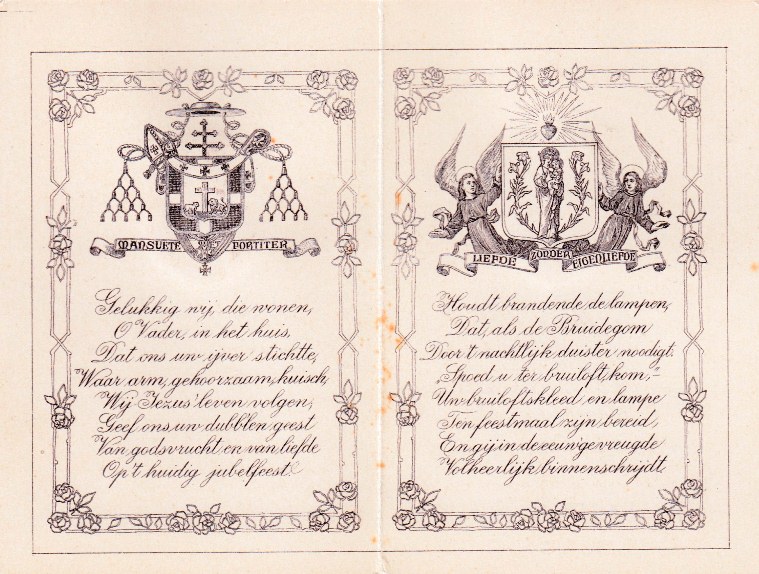 MANSUETE ET FORTITER
Gelukkig wij, die wonen,
O Vader, in het huis,
Dat ons uw ijver stichtte,
Waar arm, gehoorzaam, kuisch,
Wij Jezus' leven volgen;
Geef ons uw dubblen geest
Van godsvrucht en van liefde
Op 't huidig jubelfeest.
LIEFDE ZONDER EIGENLIEFDE
Houdt brandende de lampen,
Dat, als de Bruidegom
Door 't nachtlijk duister noodigt:
Spoed u ter bruiloft, kom,—
Uw bruiloftskleed en lampe
Ten feestmaal zijn bereid,
En gij in de eeuw'ge vreugde
Volheerlijk binnenschrijdt.